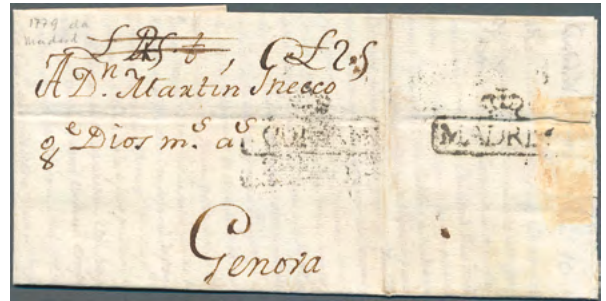 1779 da
Madrid
C£2.5
A D.ⁿ Martín Inecco
g.ᵉ Dios m.ˢ a.ˢ
MADRID
Genova